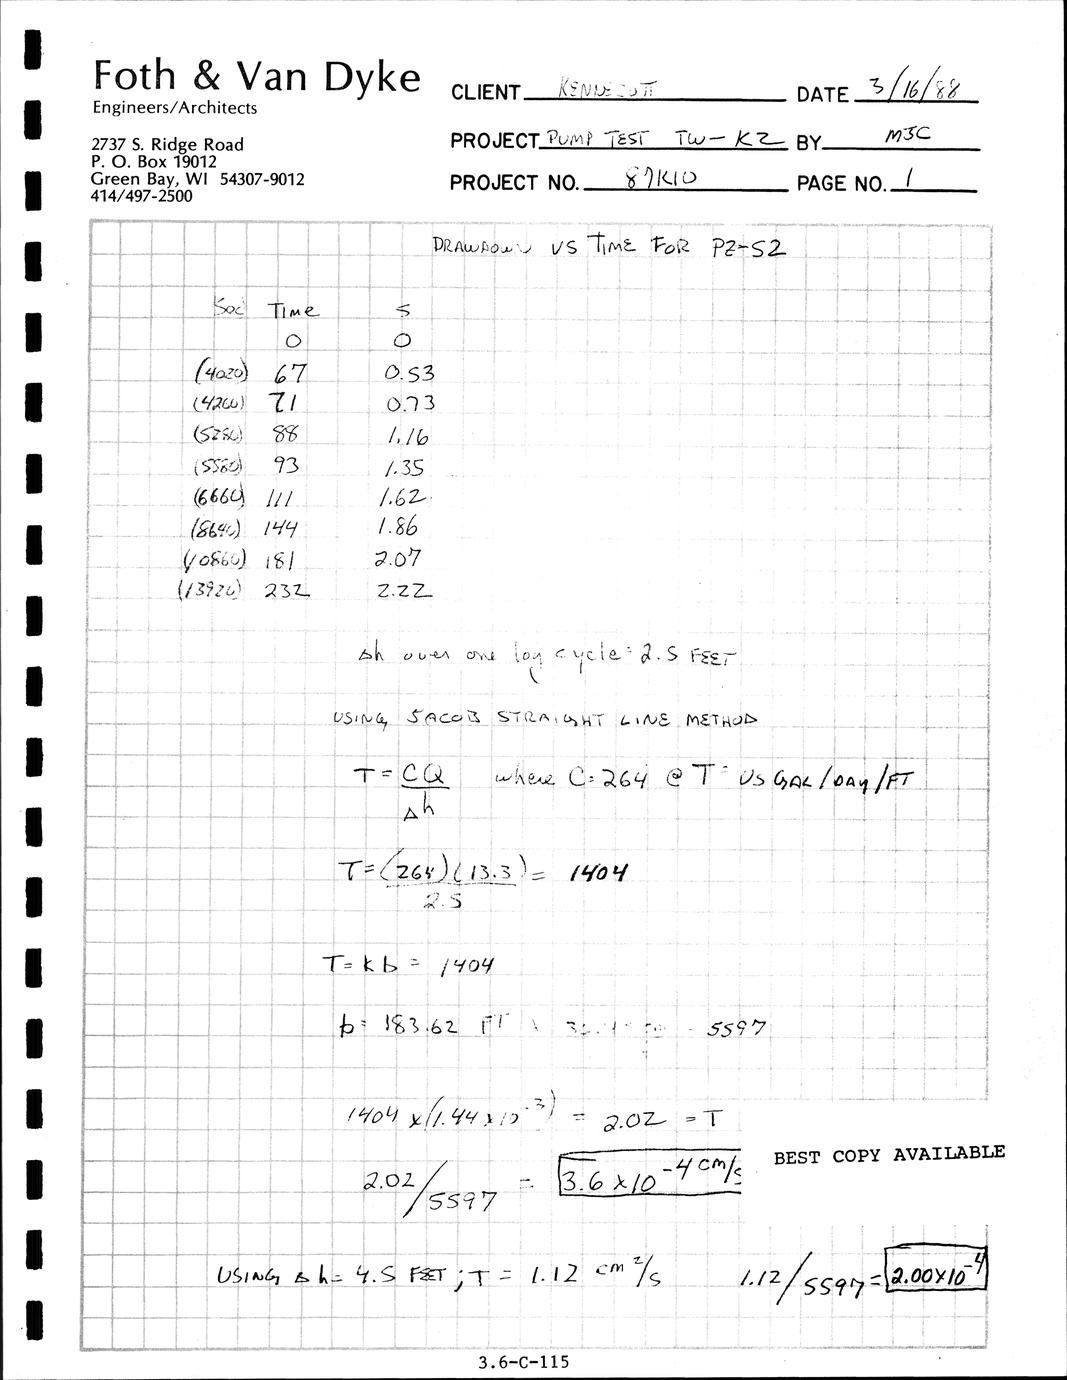 Foth & Van Dyke
Engineers/Architects
2737 S. Ridge Road
P. O. Box 19012
Green Bay, WI 54307-9012
414/497-2500
CLIENT KENNECOTT DATE 3/16/88
PROJECT PUMP TEST TW-K2 BY MJC
PROJECT NO. 87K10 PAGE NO. 1
DRAWDOWN VS TIME FOR PZ-S2
Time s
0 0
(4020) 67 0.53
(4260) 71 0.73
(5280) 88 1.16
(5580) 93 1.35
(6660) 111 1.62
(8640) 144 1.86
(10860) 181 2.07
(13920) 232 2.22
Δh over one log cycle = 2.5 FEET
USING JACOB STRAIGHT LINE METHOD
T = CQ where C = 264 @ T = US GAL/DAY/FT
Δh
T = (264)(13.3) = 1404
2.5
T = Kb = 1404
b = 183.62 FT 5597
1404 x (1.44 x 10⁻³) = 2.02 = T
2.02/5597 = 3.6 x 10⁻⁴ cm/s
BEST COPY AVAILABLE
USING Δh = 4.5 FEET; T = 1.12 cm²/s 1.12/5597 = 2.00x10⁻⁴
3.6-C-115